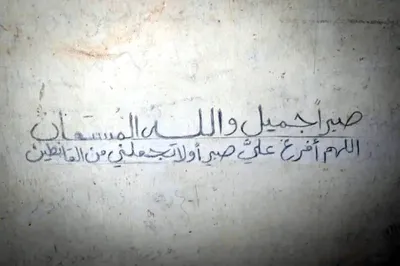 صبراً جميل والله المستعان
اللهم أفرغ عليَّ صبر أولا تجعلني من القانطين